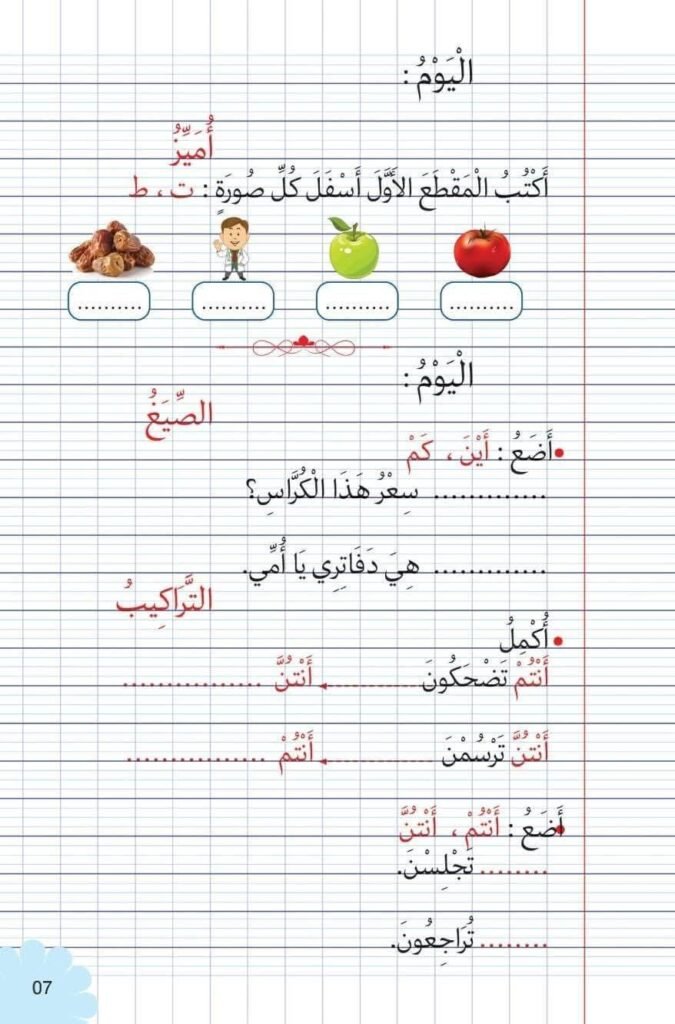 الْيَوْمُ :
أُمَيِّزُ
أَكْتُبُ الْمَقْطَعَ الأَوَّلَ أَسْفَلَ كُلِّ صُورَةٍ : ت ، ط
.......... .......... .......... ..........
الْيَوْمُ :
الصِّيَغُ
• أَضَعُ : أَيْنَ ، كَمْ
............. سِعْرُ هَذَا الْكُرَّاسِ؟
............. هِيَ دَفَاتِرِي يَا أُمِّي.
التَّرَاكِيبُ
• أُكْمِلُ
أَنْتُمْ تَضْحَكُونَ أَنْتُنَّ ................
أَنْتُنَّ تَرْسُمْنَ أَنْتُمْ ................
• أَضَعُ : أَنْتُمْ ، أَنْتُنَّ
........ تَجْلِسْنَ.
........ تُرَاجِعُونَ.
07